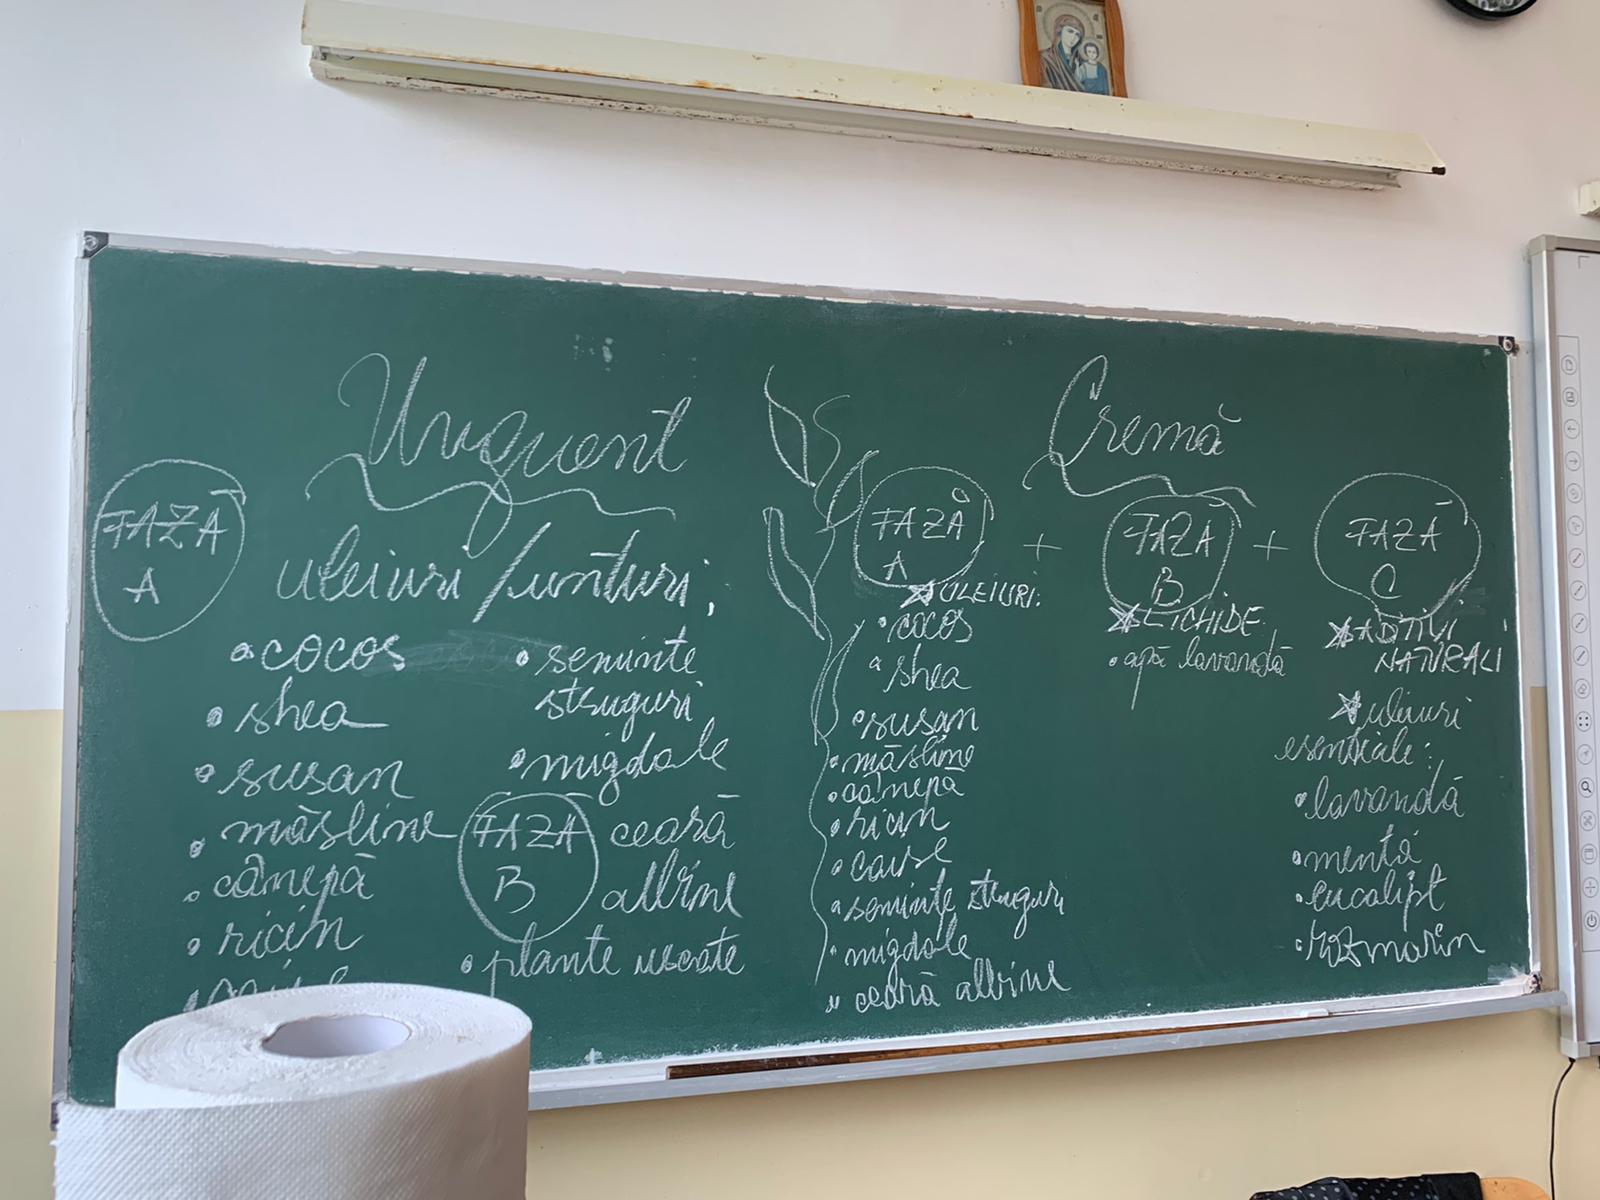 Unguent
FAZĂ
A
uleiuri/unturi:
• cocos
• shea
• susan
• măsline
• cânepă
• ricin
• seminte
struguri
• migdale
FAZĂ
B
ceară
albine
• plante uscate
Cremă
FAZĂ
A
ULEIURI:
• cocos
• shea
• susan
• măsline
• cânepă
• ricin
• caise
• seminte struguri
• migdale
• ceară albine
+
FAZĂ
B
LICHIDE
• apă lavandă
+
FAZĂ
C
ADITIVI
NATURALI
uleiuri
esentiale:
• lavandă
• mentă
• eucalipt
• rozmarin